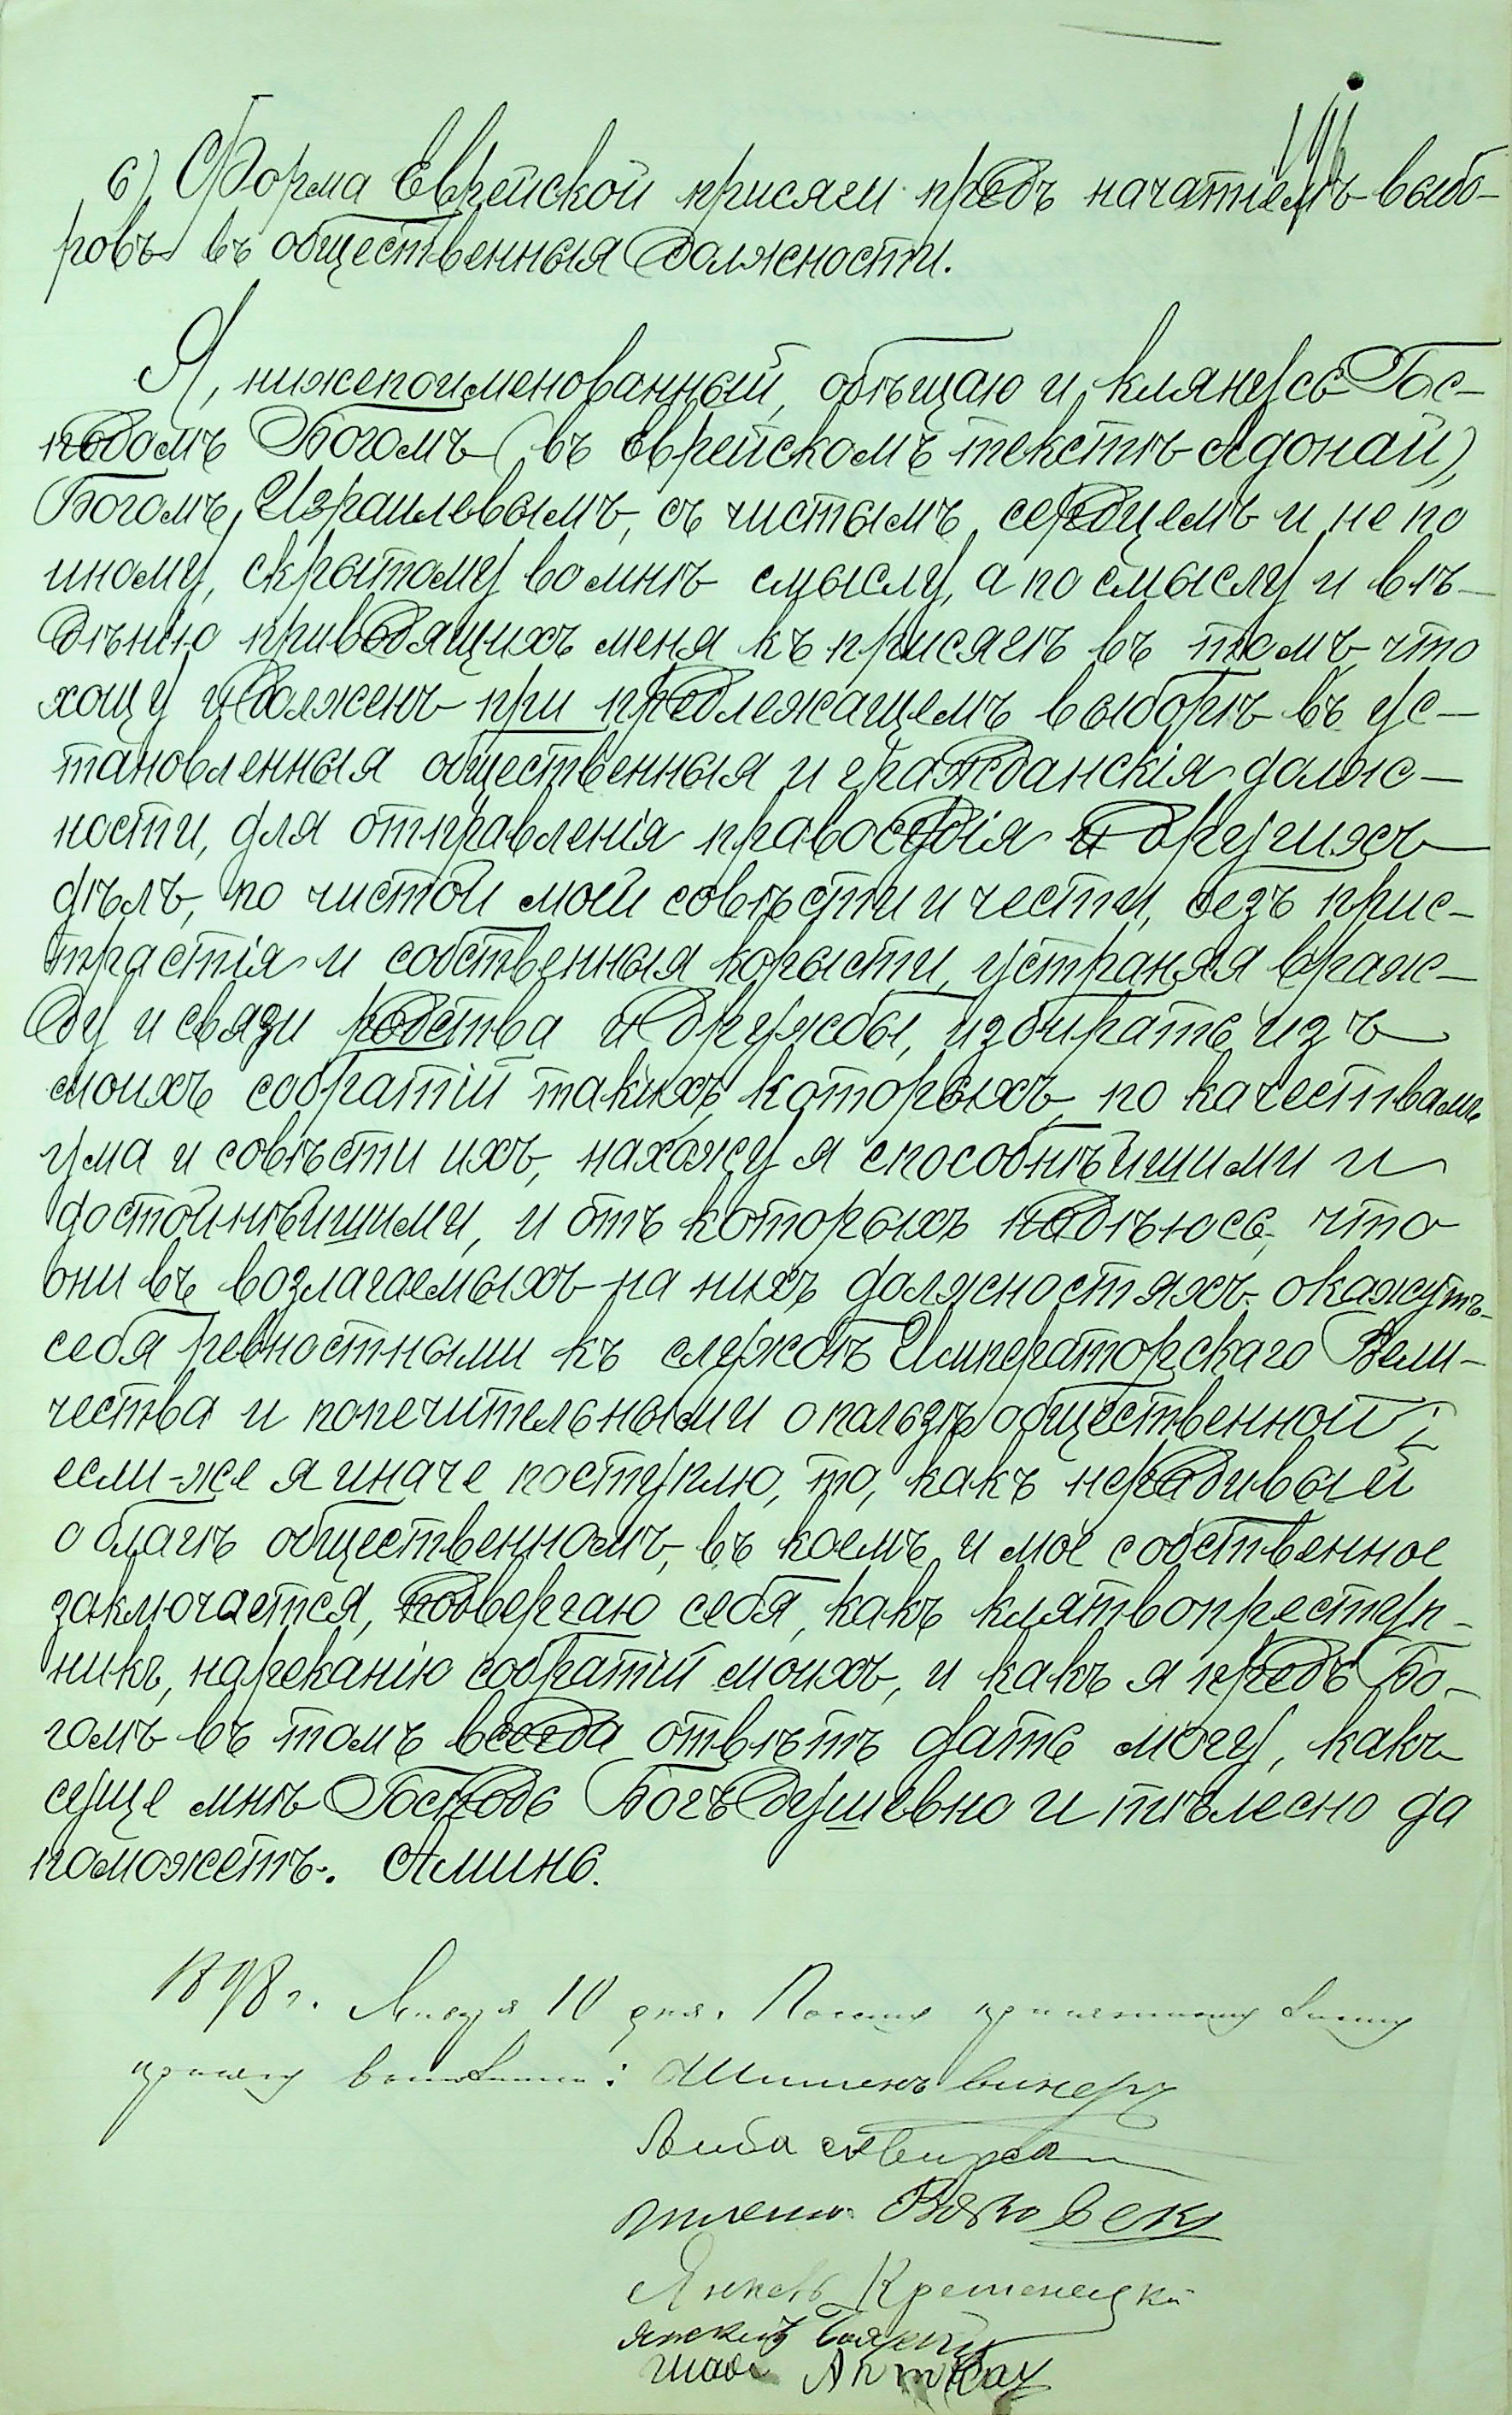 6) Форма Еврейской присяги предъ начатіемъ выбо-
ровъ въ общественныя должности.
Я, нижепоименованный, обѣщаю и клянусь Гос-
подомъ Богомъ (въ еврейскомъ текстѣ Адонай),
Богомъ Израилевымъ, съ чистымъ сердцемъ и не по
иному, скрытому во мнѣ смыслу, а по смыслу и вѣ-
дѣнію приводящихъ меня къ присягѣ въ томъ, что
хощу и долженъ при предлежащемъ выборѣ въ ус-
тановленныя общественныя и гражданскія долж-
ности, для отправленія правосудія и другихъ
дѣлъ, по чистой моей совѣсти и чести, безъ прис-
трастія и собственныя корысти, устраняя враж-
ду и связи родства и дружбы, избирать изъ
моихъ собратій такихъ, которыхъ, по качествамъ
ума и совѣсти ихъ, нахожу я способнѣйшими и
достойнѣйшими, и отъ которыхъ надѣюсь, что
они въ возлагаемыхъ на нихъ должностяхъ окажутъ
себя ревностными къ службѣ Императорскаго Вели-
чества и попечительными о пользѣ общественной;
если-же я иначе поступлю, то, какъ нерадивый
о благѣ общественномъ, въ коемъ и мое собственное
заключается, подвергаю себя, какъ клятвопреступ-
никъ, нареканію собратій моихъ, и какъ я предъ Бо-
гомъ въ томъ всегда отвѣтъ дать могу, какъ
суще мнѣ Господь Богъ душевно и тѣлесно да
поможетъ. Аминь.
1898 г. Января 10 дня. По сему присяжному листу
присягу выполнили: Шимонъ Винеръ
Янкель Кременецкій